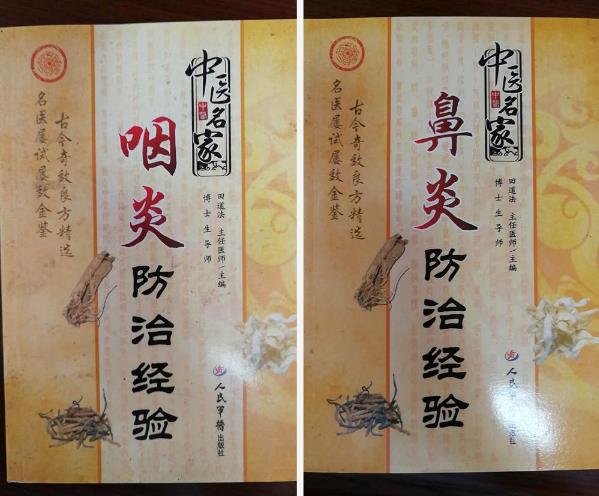 中医名家
中医
咽炎
防治经验
古今奇效良方精选
名医屡试屡效金鉴
田道法 主任医师/主编
博士生导师
人民军医出版社
中医名家
中医
鼻炎
防治经验
古今奇效良方精选
名医屡试屡效金鉴
田道法 主任医师/主编
博士生导师
人民军医出版社